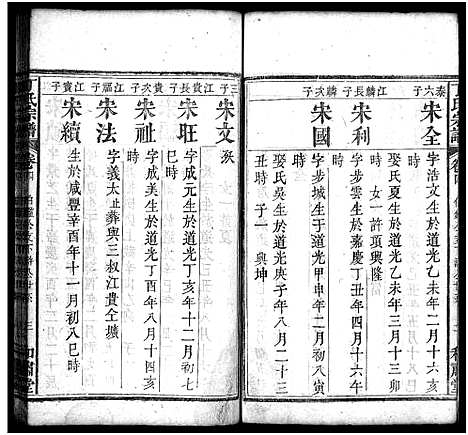 丁氏宗譜
卷四
泰六子
宋全
字浩文生於道光乙未年二月十六
娶氏夏生於道光乙未年三月十三卯
時 女一許項興隆
江麟長子
宋利
字步雲生於嘉慶丁丑年四月十六午
時
麟次子
宋國
字步城生于道光甲申年二月初八寅
娶氏吳生於道光庚子年八月二十三
丑時 子一 興坤
和肅堂
丁氏宗譜
卷四
三子
宋文
殀
江貴長子
宋旺
字成元生於道光丁亥年十二月初七
巳時
貴次子
宋祉
字成美生於道光丁酉年八月十四亥
時
江福子
宋法
字義太止葬與三叔江貴仝壙
江貴子
宋續
生於咸豐辛酉年十一月初八巳時
三
和肅堂